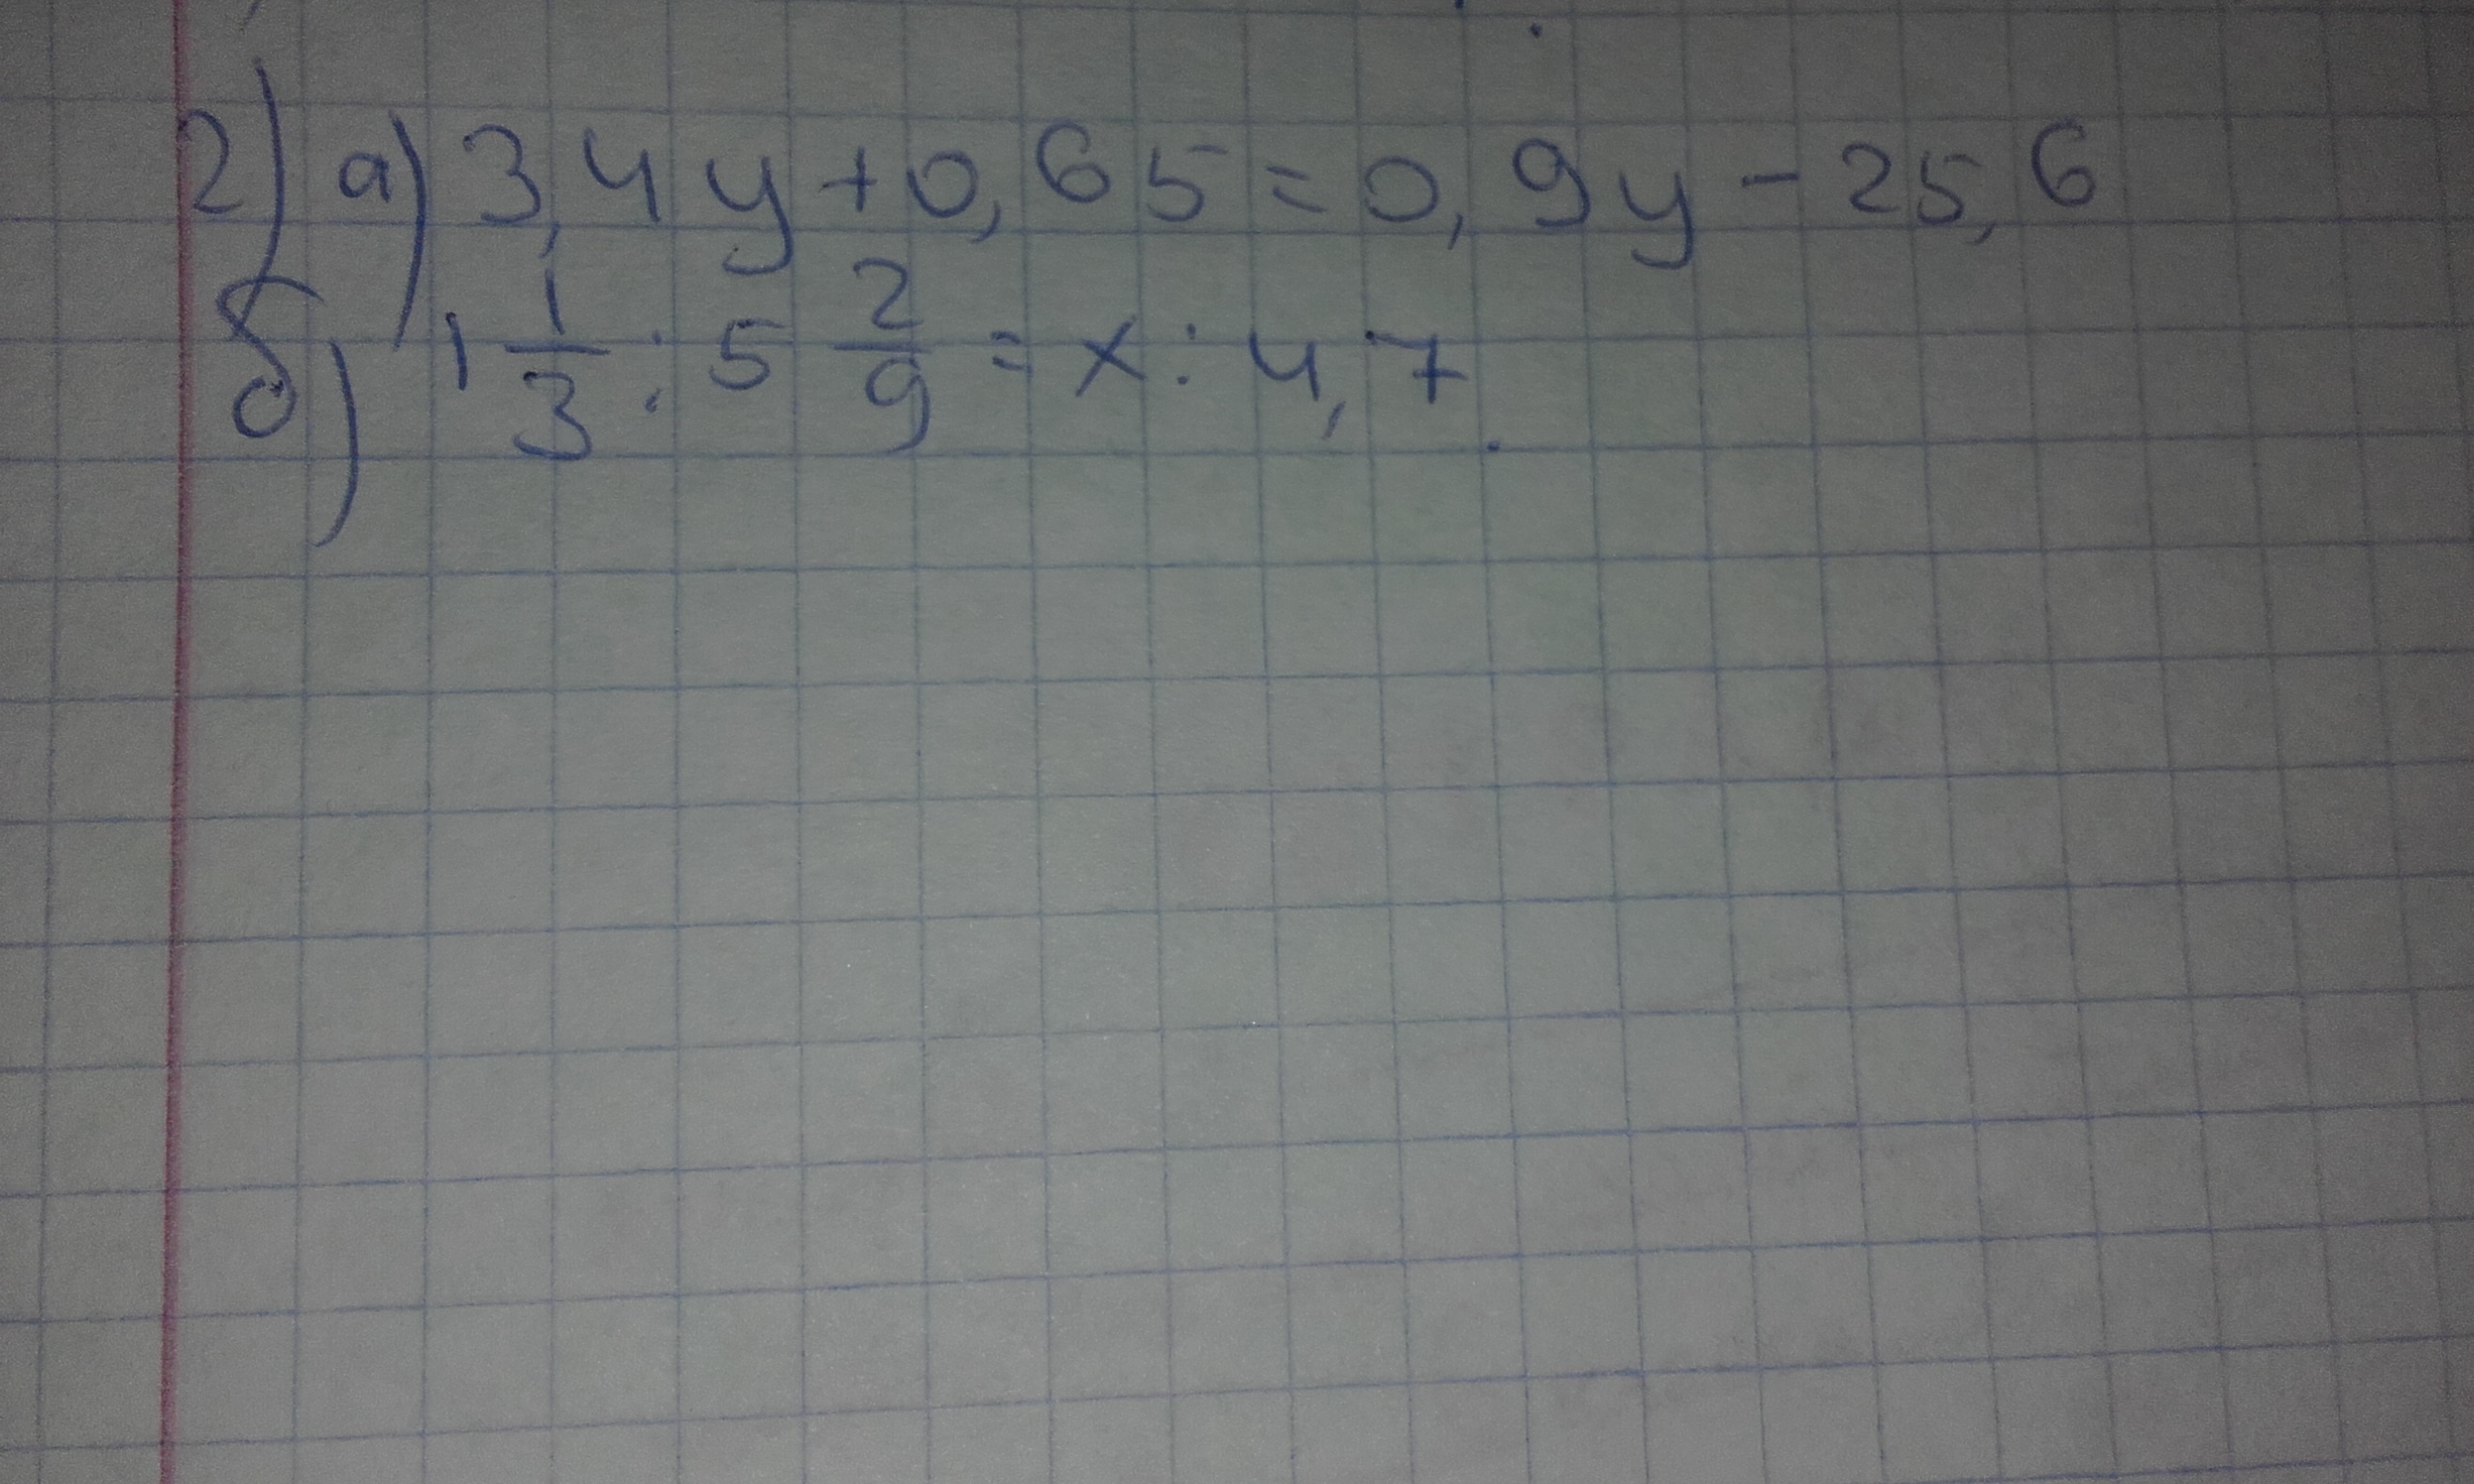 2) а) 3,4y + 0,65 = 0,9y - 25,6
б) 1 1/3 : 5 2/9 = x : 4,7